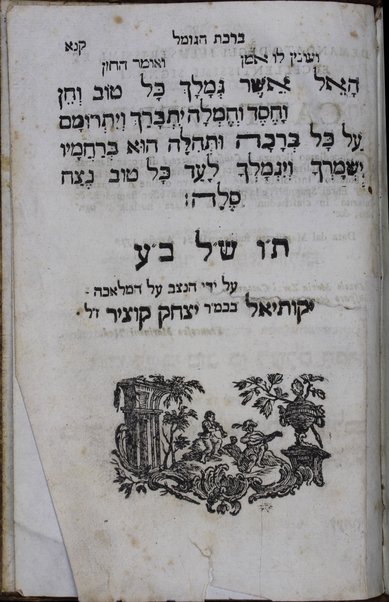 ברכת הגומל
קנא
ועונין לו אמן
ואומר החזן
האל אשר גמלך כל טוב וחן
וחסד וחמלה יתברך ויתרומם
על כל ברכה ותהלה הוא ברחמיו
ישמרך ויגמלך לעד כל טוב נצח
סלה:
ת״ו ש״ל ב״ע
על ידי הנצב על המלאכה
יקותיאל בכמ״ר יצחק קוציר ז״ל